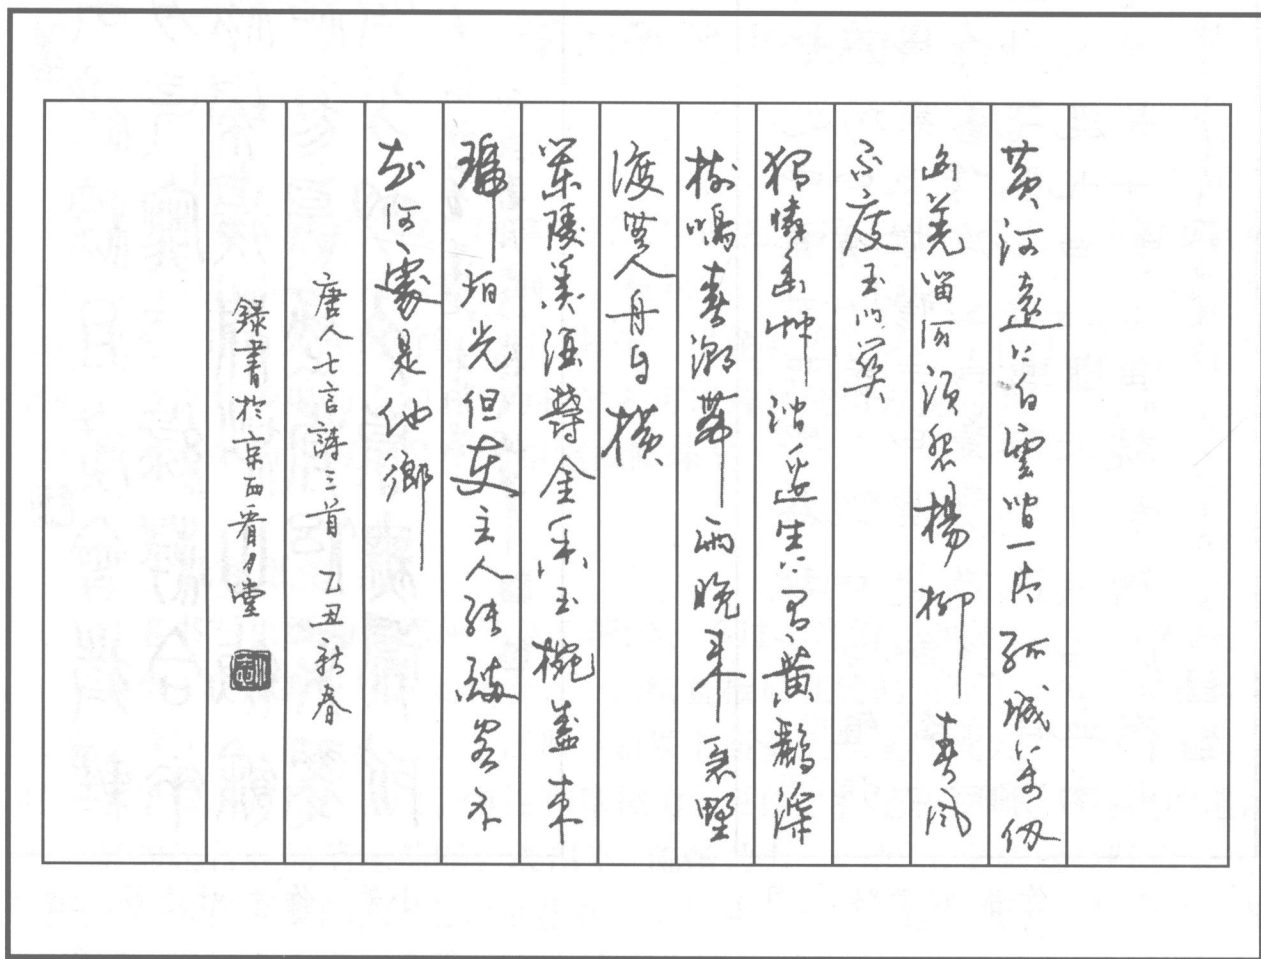 黄河遠上白雲間一片孤城萬仞
山羌笛何須怨楊柳春風
不度玉門關
獨憐幽艸澗邊生上有黄鸝深
樹鳴春潮帶雨晚來急野
渡無人舟自橫
蘭陵美酒鬱金香玉椀盛來
琥珀光但使主人能醉客不
知何處是他鄉
唐人七言詩三首 乙丑新春
錄書於京西看夕堂